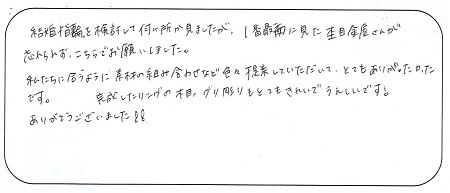 結婚指輪を検討して何か所か見ましたが、1番最初に見た杢目金屋さんが
忘れられず、こちらでお願いしました。
私たちに合うように素材の組み合わせなど色々提案していただいて、とてもありがたかった
です。 完成したリングの木目、グリ彫りもとてもきれいでうれしいです!
ありがとうございました!!